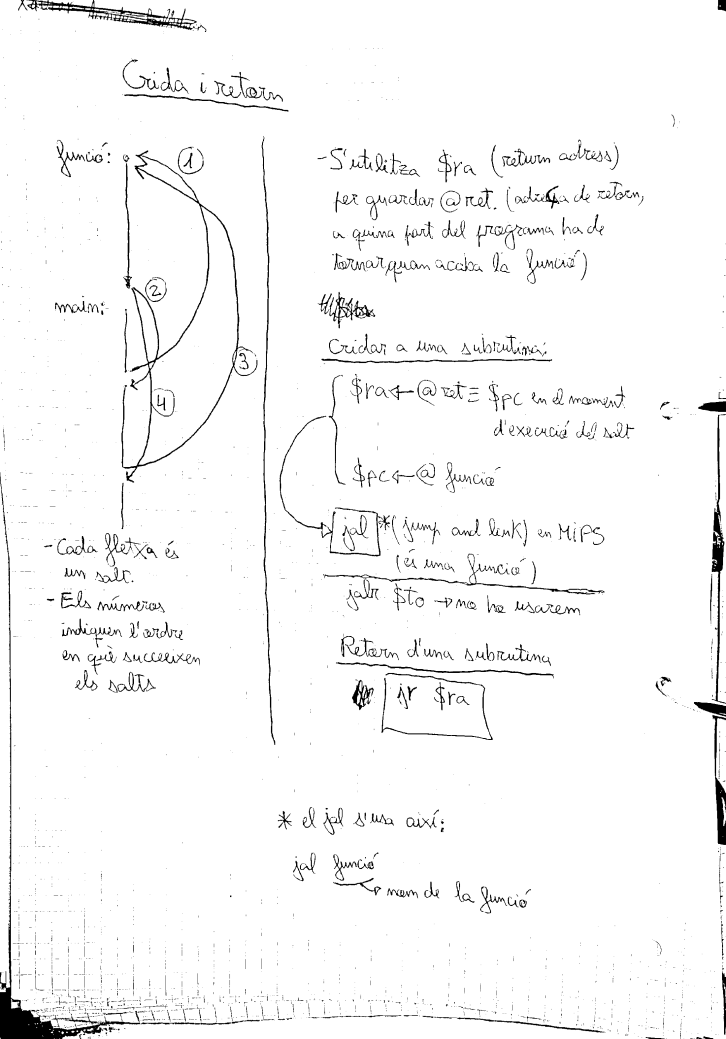 Crida i retorn
funció:
1
2
main:
3
4
- Cada fletxa és
un salt.
- Els números
indiquen l'ordre
en què succeeixen
els salts
- S'utilitza $ra (return adress)
per guardar @ret. (adreça de retorn,
a quina part del programa ha de
tornar quan acaba la funció)
Cridar a una subrutina:
$ra ← @ret ≡ $pc en el moment
d'execució del salt
$pc ← @ funció
jal *(jump and link) en MIPS
(és una funció)
jalr $to → no ho usarem
Retorn d'una subrutina
jr $ra
* el jal s'usa així:
jal funció
↳ nom de la funció